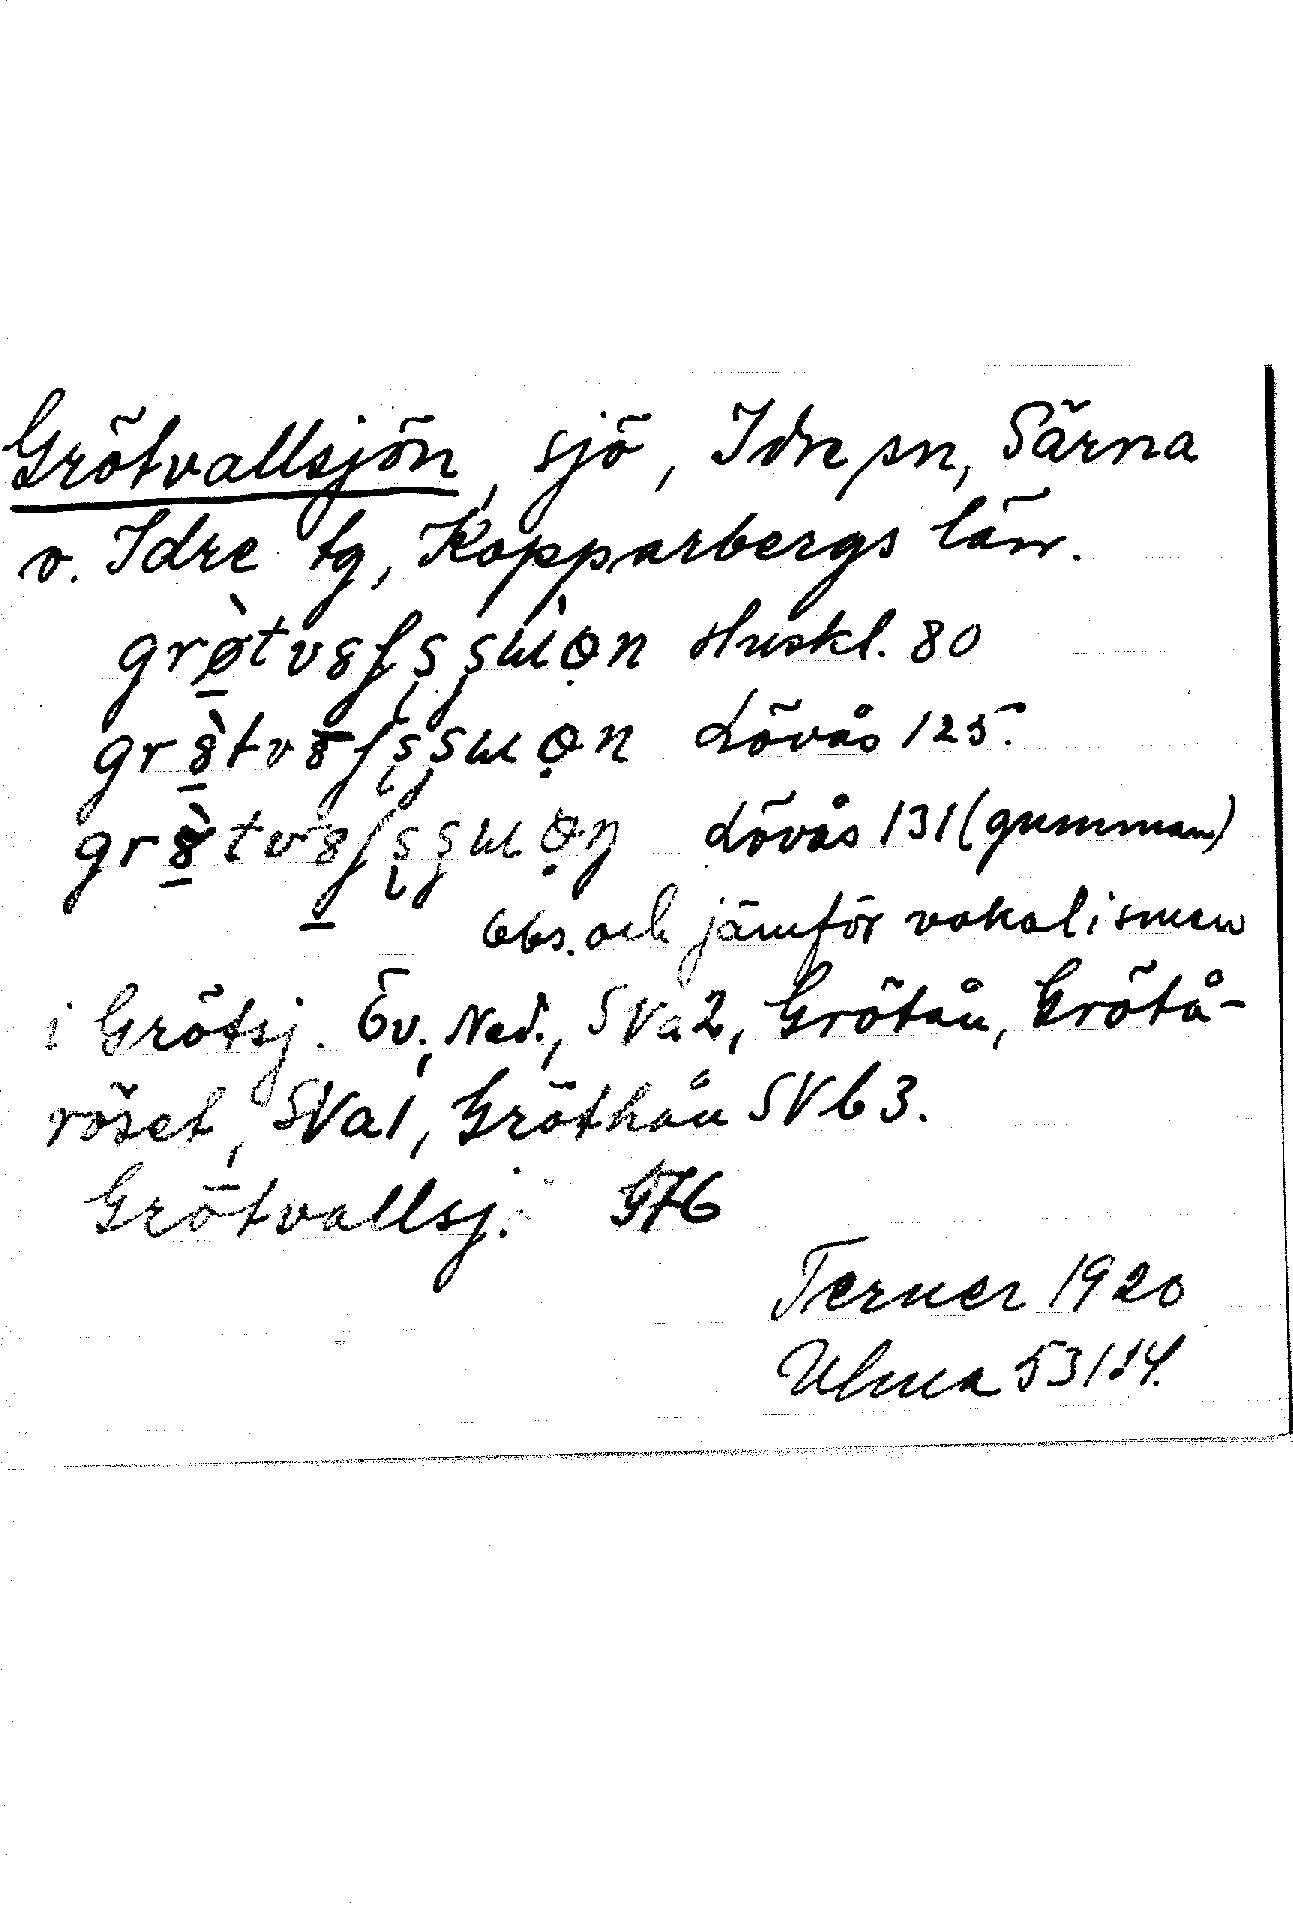 Grötvallsjön, sjö, Idre sn, Särna
o. Idre tg, Kopparbergs län.
Huskl. 80
Lövås 125.
Lövås 131 (gumman)
obs. och jämför vokalismen
i Grötsj. Öv., Ned., SVa2, Grötån, Grötå-
röset, SVa1, Gröthån SVb3.
Grötvallsj. G76
Terner 1920
Ulma 53/